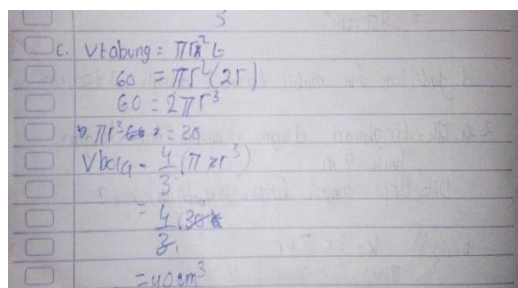 c. Vtabung = πr²t
60 = πr²(2r)
60 = 2πr³
πr³ = 30
Vbola = 4/3 (π × r³)
= 4/3 (30
= 40 cm³